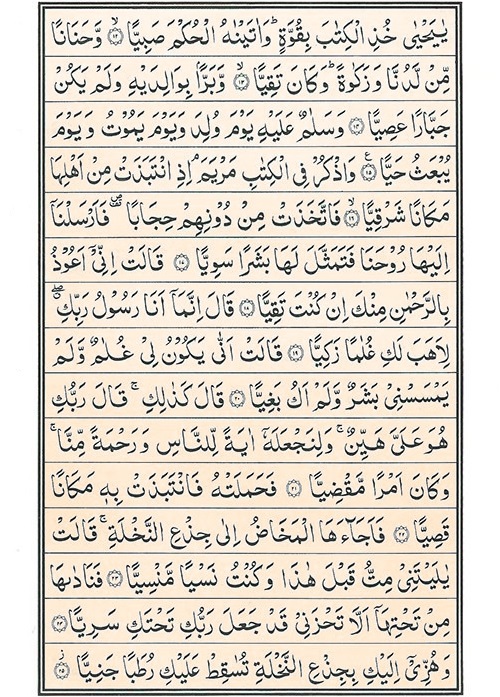 يٰيَحْيٰى خُذِ الْكِتٰبَ بِقُوَّةٍ ۖ وَاٰتَيْنٰهُ الْحُكْمَ صَبِيًّا ۙ ﴿١٢﴾ وَّحَنَانًا
مِّنْ لَّدُنَّا وَزَكٰوةً ۖ وَكَانَ تَقِيًّا ۙ ﴿١٣﴾ وَّبَرًّا بِوَالِدَيْهِ وَلَمْ يَكُنْ
جَبَّارًا عَصِيًّا ﴿١٤﴾ وَسَلٰمٌ عَلَيْهِ يَوْمَ وُلِدَ وَيَوْمَ يَمُوْتُ وَيَوْمَ
يُبْعَثُ حَيًّا ﴿١٥﴾ وَاذْكُرْ فِى الْكِتٰبِ مَرْيَمَ ۘ اِذِ انْتَبَذَتْ مِنْ اَهْلِهَا
مَكَانًا شَرْقِيًّا ۙ ﴿١٦﴾ فَاتَّخَذَتْ مِنْ دُوْنِهِمْ حِجَابًا ۖ فَاَرْسَلْنَآ
اِلَيْهَا رُوْحَنَا فَتَمَثَّلَ لَهَا بَشَرًا سَوِيًّا ﴿١٧﴾ قَالَتْ اِنِّىْٓ اَعُوْذُ
بِالرَّحْمٰنِ مِنْكَ اِنْ كُنْتَ تَقِيًّا ﴿١٨﴾ قَالَ اِنَّمَآ اَنَا رَسُوْلُ رَبِّكِ ۖ
لِاَهَبَ لَكِ غُلٰمًا زَكِيًّا ﴿١٩﴾ قَالَتْ اَنّٰى يَكُوْنُ لِىْ غُلٰمٌ وَّلَمْ
يَمْسَسْنِىْ بَشَرٌ وَّلَمْ اَكُ بَغِيًّا ﴿٢٠﴾ قَالَ كَذٰلِكِ ۚ قَالَ رَبُّكِ
هُوَ عَلَىَّ هَيِّنٌ ۚ وَلِنَجْعَلَهٗٓ اٰيَةً لِّلنَّاسِ وَرَحْمَةً مِّنَّا ۚ
وَكَانَ اَمْرًا مَّقْضِيًّا ﴿٢١﴾ فَحَمَلَتْهُ فَانْتَبَذَتْ بِهٖ مَكَانًا
قَصِيًّا ﴿٢٢﴾ فَاَجَآءَهَا الْمَخَاضُ اِلٰى جِذْعِ النَّخْلَةِ ۚ قَالَتْ
يٰلَيْتَنِىْ مِتُّ قَبْلَ هٰذَا وَكُنْتُ نَسْيًا مَّنْسِيًّا ﴿٢٣﴾ فَنَادٰىهَا
مِنْ تَحْتِهَآ اَلَّا تَحْزَنِىْ قَدْ جَعَلَ رَبُّكِ تَحْتَكِ سَرِيًّا ﴿٢٤﴾
وَهُزِّىْٓ اِلَيْكِ بِجِذْعِ النَّخْلَةِ تُسٰقِطْ عَلَيْكِ رُطَبًا جَنِيًّا ۙ ﴿٢٥﴾